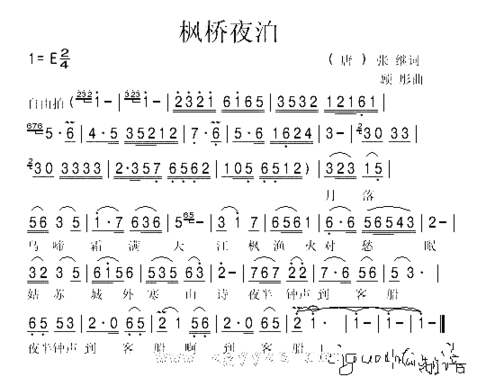 枫桥夜泊
1=E2/4
(唐)张继词
顾彤曲
自由拍(232i-|232i-|2321 6165|3532 12161|
676 5·6|4·5 35212|7·6|5·6 1624|3-|2 30 33|
2 30 3333|2·357 6562|105 6512)|323 15|
月 落
56 3 5|1·7 636|65 5-|3 1 7|6561|6·6 56543|2-|
乌 啼 霜 满 天 江 枫 渔 火 对 愁 眠
32 3 5|6156|535 63|2-|767 22|7·6 56|5 3·|
姑 苏 城 外 寒 山 诗 夜半 钟声 到 客 船
65 53|2·0 65|2 1 56|2·0 65|2 1·|1·|1-‖
夜半钟声 到 客 船 啊 到 客 船!